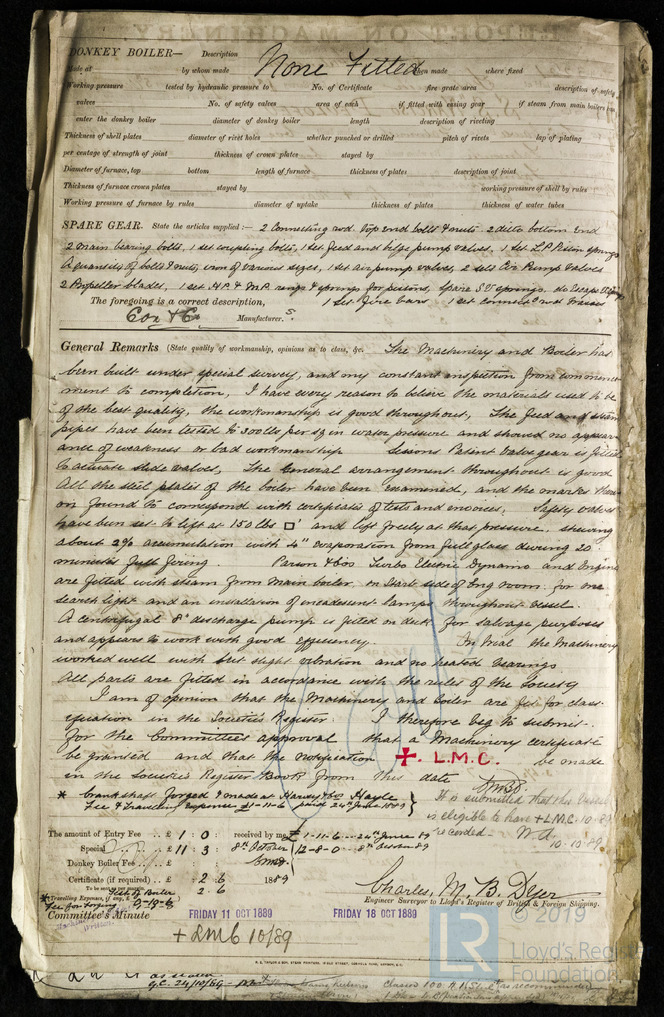 DONKEY BOILER— Description
Made at by whom made None Fitted when made where fixed
Working pressure tested by hydraulic pressure to No. of Certificate fire grate area description of safety
valves No. of safety valves area of each if fitted with easing gear if steam from main boilers can
enter the donkey boiler diameter of donkey boiler length description of riveting
Thickness of shell plates diameter of rivet holes whether punched or drilled pitch of rivets lap of plating
per centage of strength of joint thickness of crown plates stayed by
Diameter of furnace, top bottom length of furnace thickness of plates description of joint
Thickness of furnace crown plates stayed by working pressure of shell by rules
Working pressure of furnace by rules diameter of uptake thickness of plates thickness of water tubes
SPARE GEAR. State the articles supplied :— 2 Connecting rod top end bolts & nuts 2 ditto bottom end
2 main bearing bolts, 1 set coupling bolts, 1 set feed and bilge pump valves, 1 set L.P. Piston springs
A quantity of bolts & nuts, iron of various sizes, 1 set air pump valves, 2 sets Cir Pump Valves
2 Propeller blades, 1 set H.P. & M.P. rings & springs for pistons, spare S.V. springs, do Escape
The foregoing is a correct description, 1 set fire bars 1 set connect rod brasses
Cox & Co Manufacturers.
General Remarks (State quality of workmanship, opinions as to class, &c. The Machinery and Boiler has
been built under special survey, and my constant inspection from commence-
ment to completion, I have every reason to believe the materials used to be
of the best quality, the workmanship is good throughout, The feed and steam
pipes have been tested to 300 lbs per sq in water pressure and showed no appear-
ance of weakness or bad workmanship Patent Valve gear is fitted
to actuate slide valves, The General arrangement throughout is good
All the steel plates of the boiler have been examined, and the marks there-
on found to correspond with certificates of tests and invoices, Safety valves
have been set to lift at 150 lbs □" and lift freely at that pressure, shewing
about 2% accumulation with 4" evaporation from full glass during 20
minutes full firing. Parson & Co's Turbo Electric Dynamo and Engine
are fitted with steam from main boiler, on start side of Eng room for one
search light and an installation of incandescent lamps throughout vessel.
A centrifugal 8" discharge pump is fitted on deck for salvage purposes
and appears to work with good efficiency. On trial the Machinery
worked well with but slight vibration and no heated bearings
All parts are fitted in accordance with the rules of the Society
I am of opinion that the Machinery and boiler are fit for class-
ification in the Societies Register. I therefore beg to submit
for the Committee's approval that a Machinery certificate
be granted and that the notification ✠. L.M.C. be made
in the Societies Register Book from this date
* Crankshaft forged & made at Harvey & Co Hayle
Fee & Travelling expenses £1-11-6 paid 24th June 1889
It is submitted that this Vessel
is eligible to have + L.M.C. 10.89
recorded.
10.10.89
The amount of Entry Fee .. £ 1 : 0 : received by me, £ 1-11-6 ... 24th June 89
Special .. £ 11 : 3 : 8th October 12-8-0 ... 8th October 89
Donkey Boiler Fee .. £ : : CMBD.
Certificate (if required) .. £ : 2 : 6 1889
To be sent as per margin.
Test of Boiler 2 . 6
*Travelling Expenses, if any, £
Fee for forging
Charles, M. B. Dyer
Engineer Surveyor to Lloyd's Register of British & Foreign Shipping.
Committee's Minute
FRIDAY 11 OCT 1889 FRIDAY 18 OCT 1889
+ LMC 10/89
© 2019
LR
Lloyd's Register
Foundation